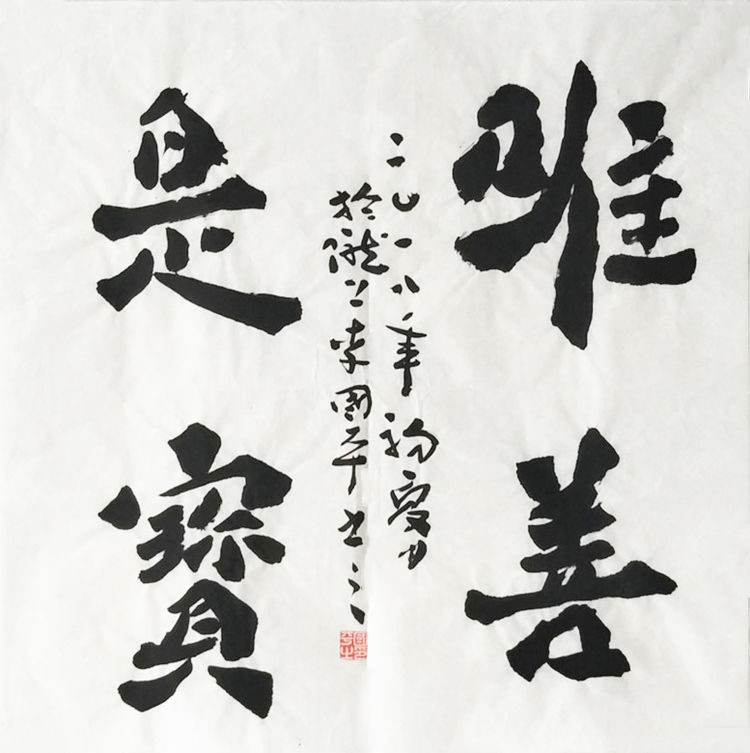 唯善
是寶
二〇一八年初夏
於隴上李國平书之